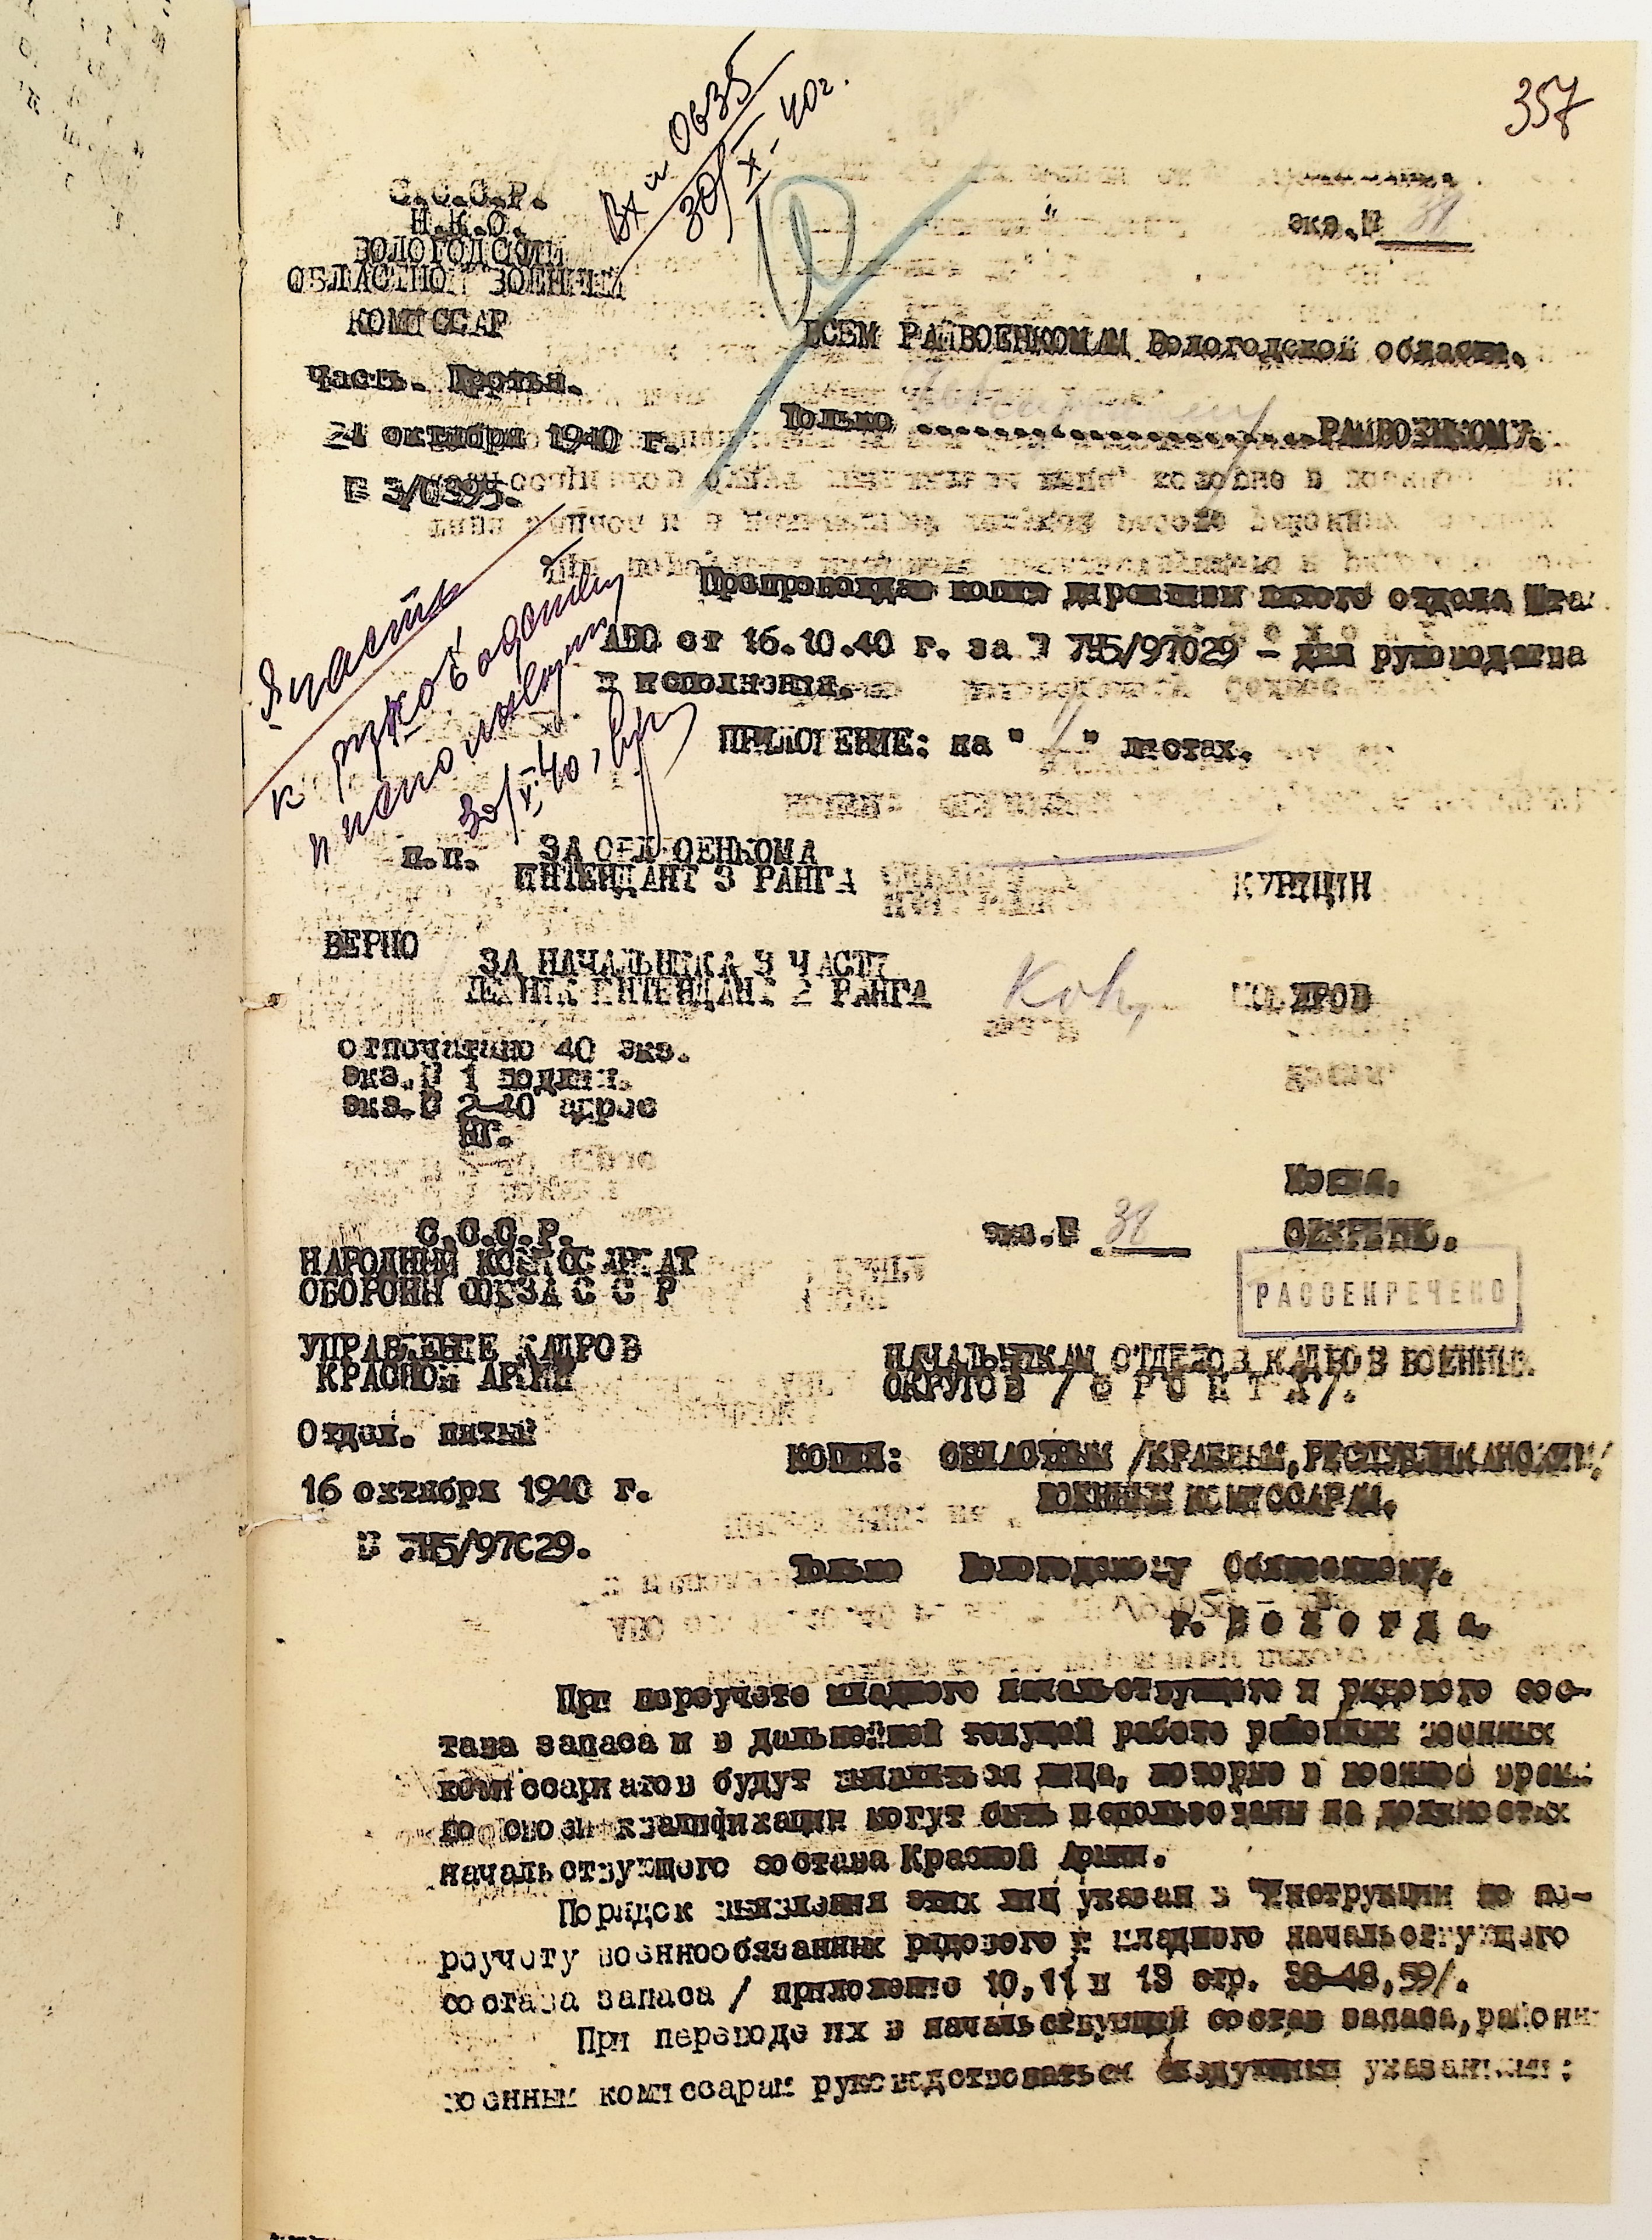 357
Вх № 0635
30/X-40г.
С.С.С.Р.
Н.К.О.
ВОЛОГОДСКИЙ
ОБЛАСТНОЙ ВОЕННЫЙ
КОМИССАР
экз.№ 38
ВСЕМ РАЙВОЕНКОМАМ Вологодской области.
Часть. Третья.
21 октября 1940 г.
Только РАЙВОЕНКОМУ.
№ 3/0395.
3 часть
к руководству
и исполнению
30/X 40,
Препровождаю копию директивы пятого отдела Шта
АВО от 16.10.40 г. за № /97029 – для руководства
и исполнения.
ПРИЛОЖЕНИЕ: на " " листах.
п.п. ЗА ОБЛВОЕНКОМА
ИНТЕНДАНТ 3 РАНГА КУРИЦИН
ВЕРНО
ЗА НАЧАЛЬНИКА 3 ЧАСТИ
ТЕХНИК ИНТЕНДАНТ 2 РАНГА
отпечатано 40 экз.
экз.№ 1 подлин.
экз.№ 2–40 адрес
НГ.
Копия.
С.С.С.Р.
экз.№ 38 СЕКРЕТНО.
НАРОДНЫЙ КОМИССАРИАТ
ОБОРОНЫ СОЮЗА С С Р
РАССЕКРЕЧЕНО
УПРАВЛЕНИЕ КАДРОВ
КРАСНОЙ АРМИИ
НАЧАЛЬНИКАМ ОТДЕЛОВ КАДРОВ ВОЕННЫХ
ОКРУГОВ / Ф Р О Н Т А /.
Отдел. пятый
КОПИЯ: ОБЛАСТНЫМ /КРАЕВЫМ, РЕСПУБЛИКАНСКИМ/
16 октября 1940 г.
ВОЕННЫМ КОМИССАРАМ.
№ /97029.
Только Вологодскому Облвоенкому.
г. В о л о г д а.
При переучете младшего начальствующего и рядового сос-
тава запаса и в дальнейшей текущей работе районных военных
комиссариатов будут выявляться лица, которые в военное время
по своей квалификации могут быть использованы на должностях
начальствующего состава Красной Армии.
Порядок выявления этих лиц указан в "Инструкции по пе-
реучету военнообязанных рядового и младшего начальствующего
состава запаса / приложение 10, 11 и 13 стр. 38–48, 59/.
При переводе их в начальствующий состав запаса, районны
военным комиссарам руководствоваться следующими указаниями: